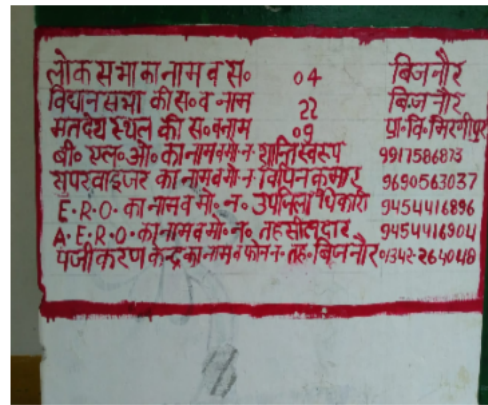 लोक सभा का नाम व स० ०4 बिजनौर
विधान सभा की स० व नाम 22 बिजनौर
मतदेय स्थल की स० व नाम ०9 प्रा० वि० मिरगीपुर
बी० एल० ओ० का नाम व मो० न० शान्तिस्वरूप 9917586873
सुपरवाइजर का नाम व मो० न० विपिन कुमार 9690563037
E.R.O. का नाम व मो० न० उपजिलाधिकारी 9454416896
A.E.R.O. का नाम व मो० न० तहसीलदार 9454416904
पंजीकरण केन्द्र का नाम व फोन न० तह० बिजनौर 01342-264048